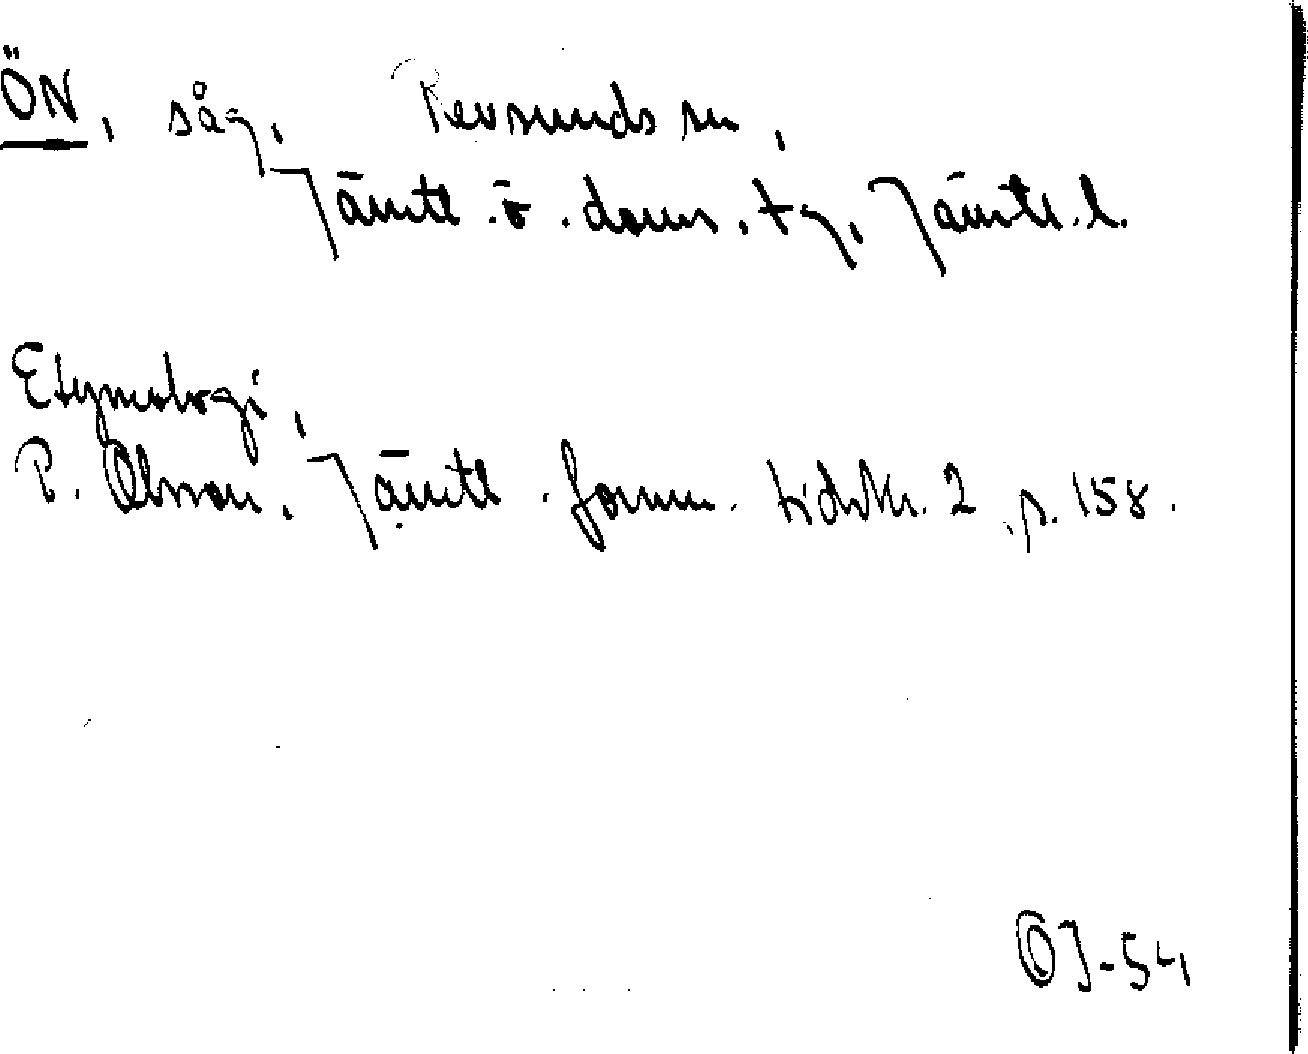 ÖN, såg, Revsunds sn,
Jämtl. ö. doms. tg, Jämtl. l.
Etymologi,
P. Olsson, Jämtl. fornm. tidskr. 2, p. 158.
OJ-54